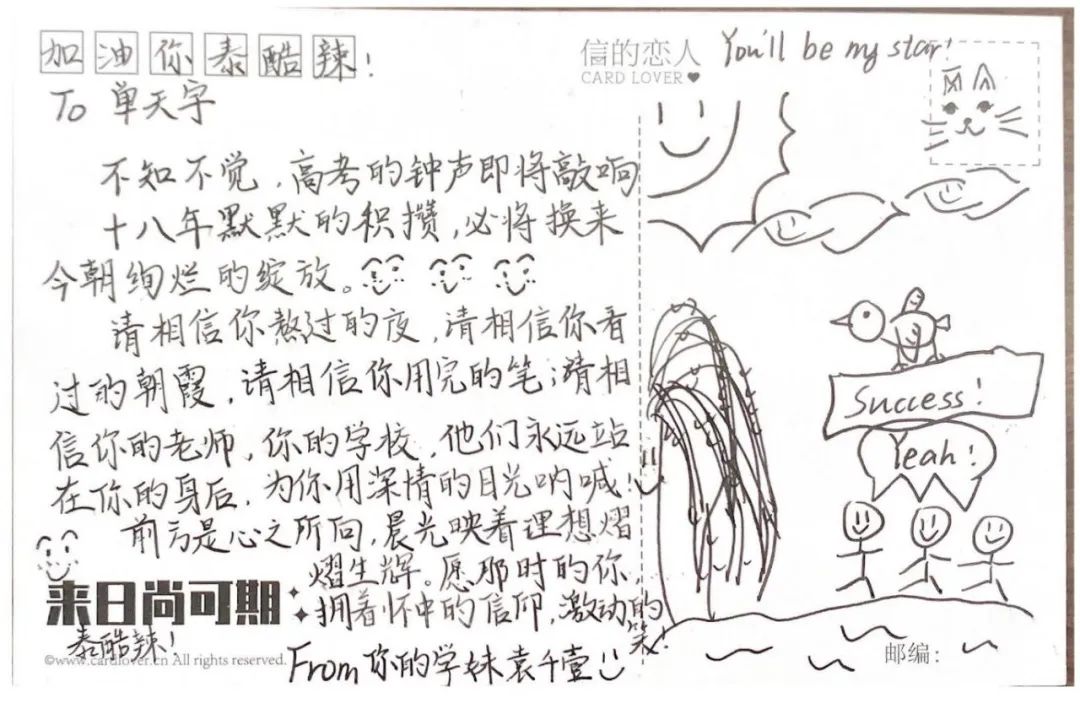 加油你泰酷辣!
信的恋人
CARD LOVER
You'll be my star!
To 单天宇
不知不觉，高考的钟声即将敲响
十八年默默的积攒，必将换来
今朝绚烂的绽放。
请相信你熬过的夜，请相信你看
过的朝霞，请相信你用完的笔；请相
信你的老师，你的学校，他们永远站
在你的身后，为你用深情的目光呐喊!
前方是心之所向，晨光映着理想熠
熠生辉。愿那时的你，
拥着怀中的信仰，激动的
笑!
来日尚可期
泰酷辣!
©www.cardlover.cn All rights reserved.
From 你的学妹袁千壹
Success!
Yeah!
邮编：